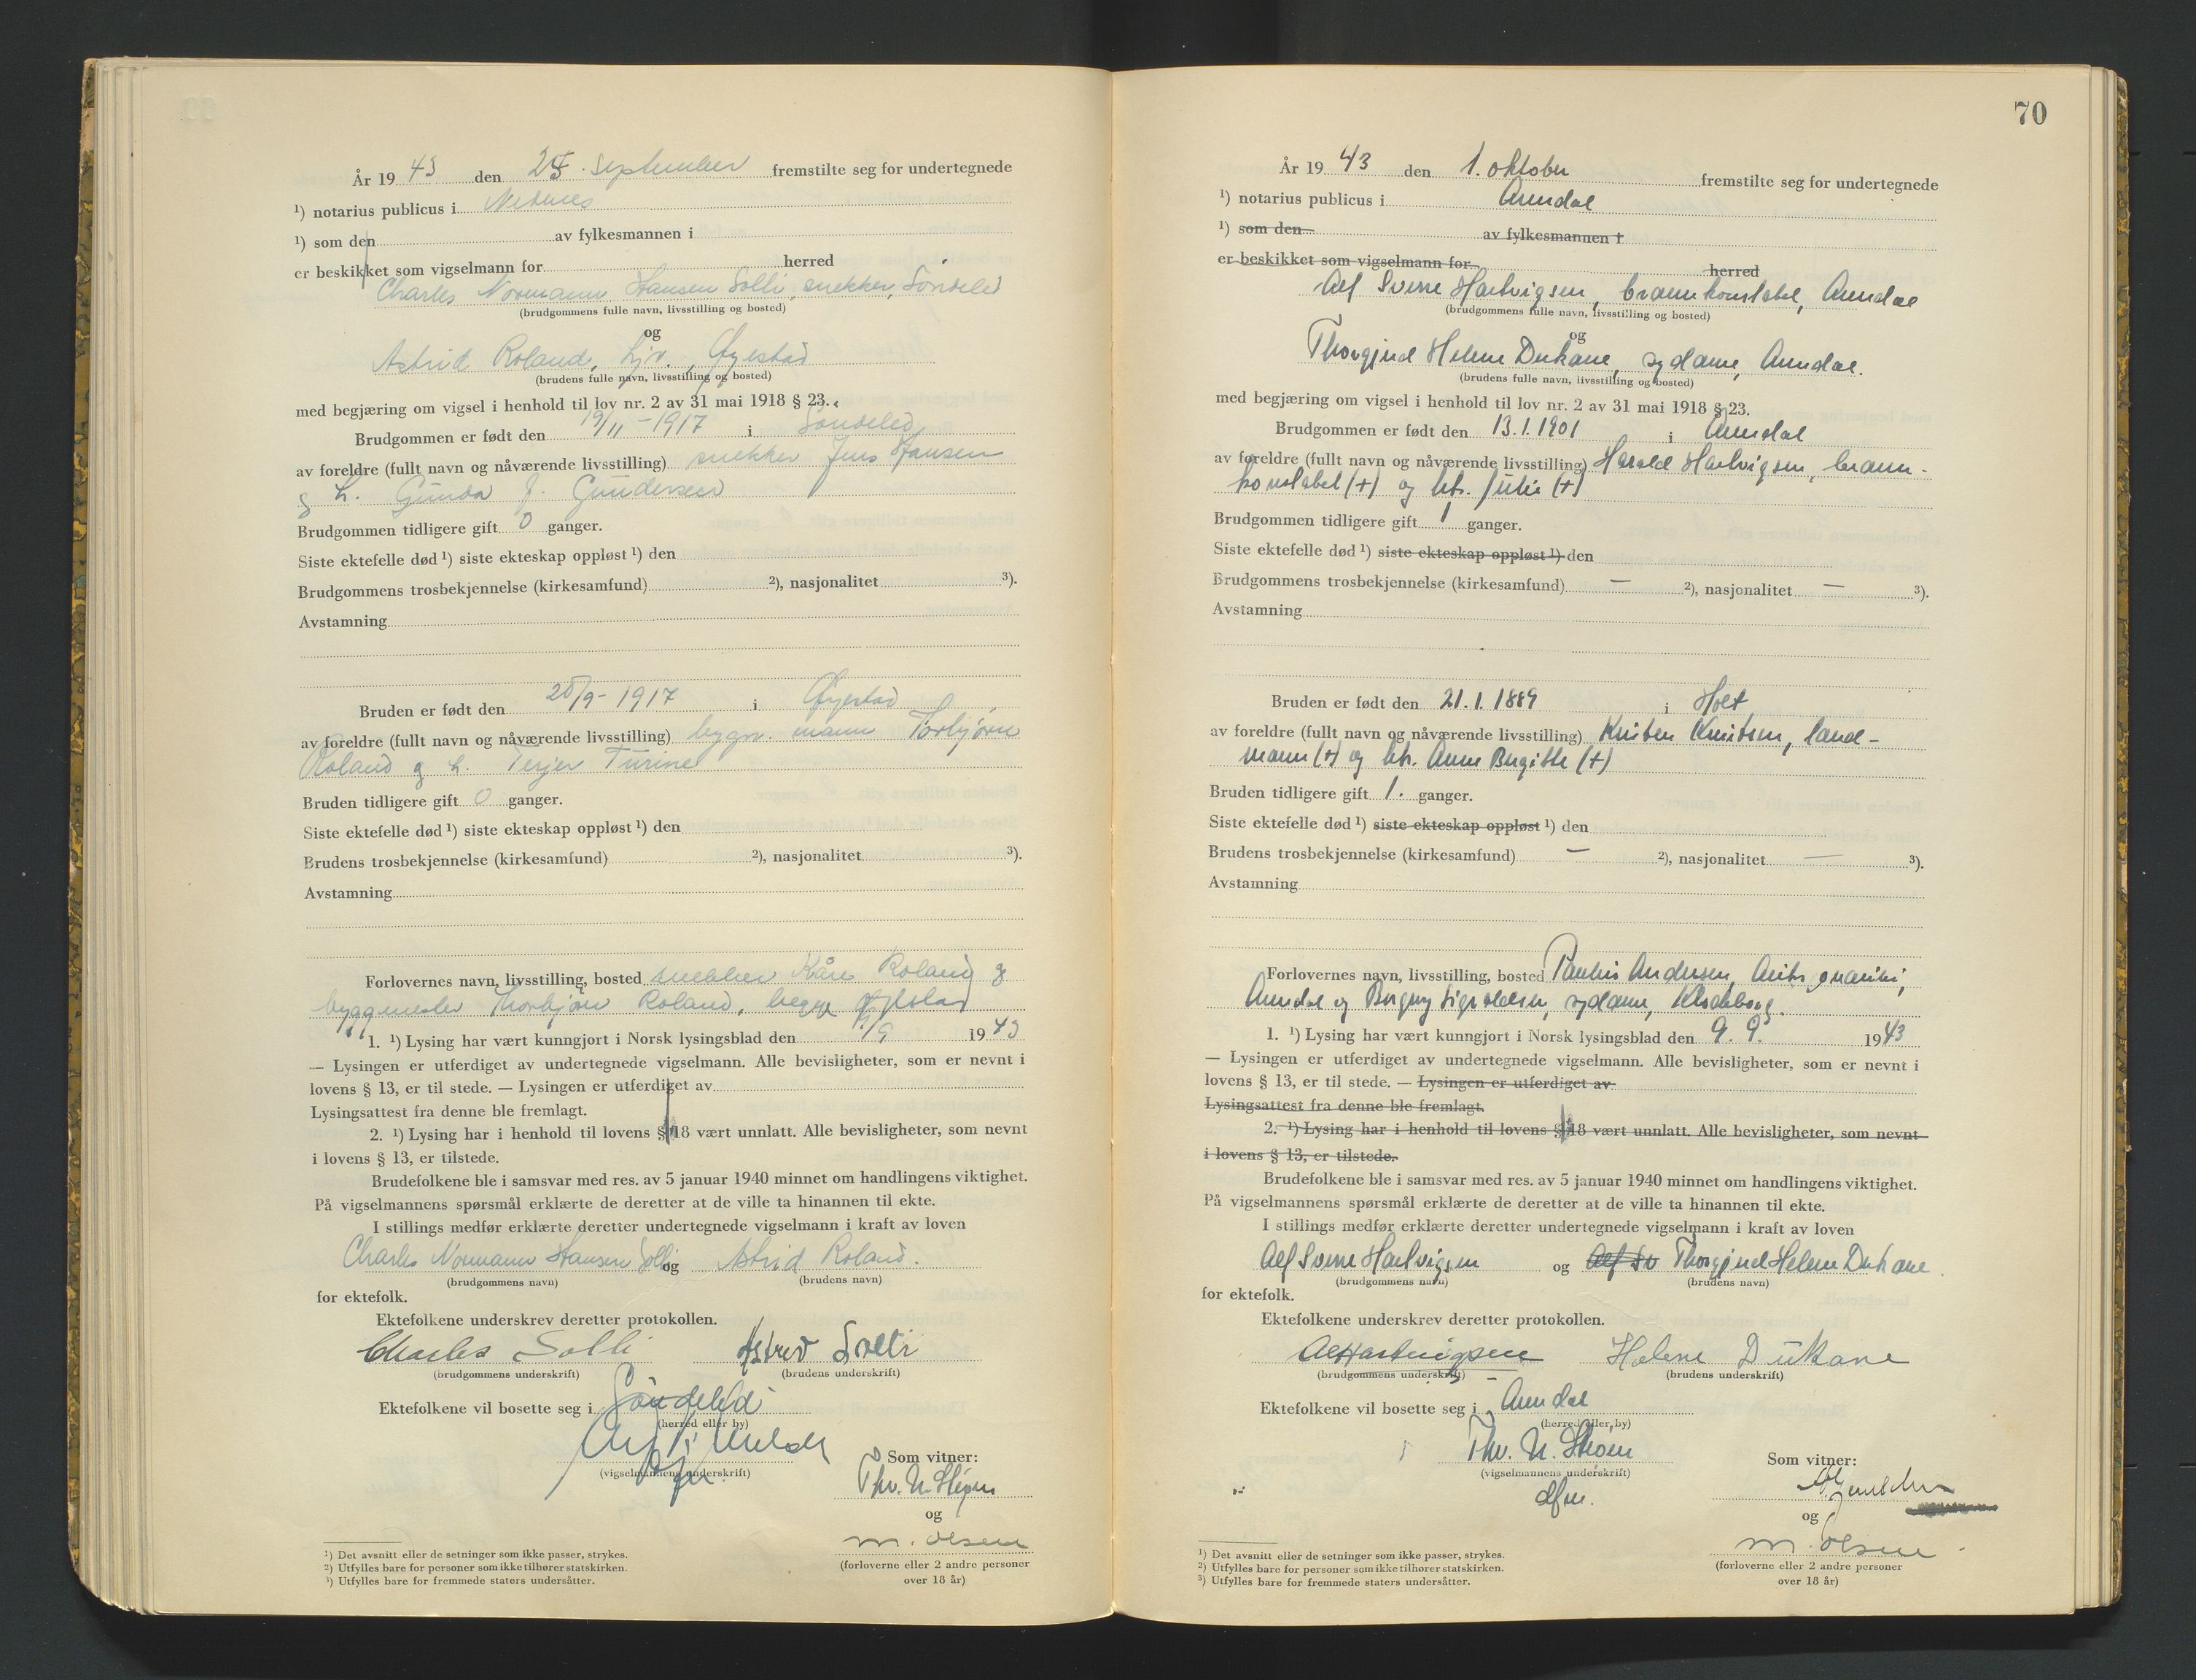 År 19 43 den 25. september fremstilte seg for undertegnede
¹) notarius publicus i Nedenes
¹) som den av fylkesmannen i
er beskikket som vigselmann for herred
Charles Normann Hansen Solli, snekker, Søndeled
(brudgommens fulle navn, livsstilling og bosted)
og
Astrid Roland, hjv., Øyestad
(brudens fulle navn, livsstilling og bosted)
med begjæring om vigsel i henhold til lov nr. 2 av 31 mai 1918 § 23.
Brudgommen er født den 19/11 - 1917 i Søndeled
av foreldre (fullt navn og nåværende livsstilling) snekker Jens Hansen
g h. Gunda J. Gundersen
Brudgommen tidligere gift 0 ganger.
Siste ektefelle død ¹) siste ekteskap oppløst ¹) den
Brudgommens trosbekjennelse (kirkesamfund) ²), nasjonalitet ³).
Avstamning
Bruden er født den 20/9 - 1917 i Øyestad
av foreldre (fullt navn og nåværende livsstilling) bygn. mann Torbjørn
Roland g h. Terjer Turine
Bruden tidligere gift 0 ganger.
Siste ektefelle død ¹) siste ekteskap oppløst ¹) den
Brudens trosbekjennelse (kirkesamfund) ²), nasjonalitet ³).
Avstamning
Forlovernes navn, livsstilling, bosted snekker Kåre Roland g
byggmester Thorbjørn Roland, begge Øyestad
1. ¹) Lysing har vært kunngjort i Norsk lysingsblad den /9 19 43
— Lysingen er utferdiget av undertegnede vigselmann. Alle bevisligheter, som er nevnt i
lovens § 13, er til stede. — Lysingen er utferdiget av
Lysingsattest fra denne ble fremlagt.
2. ¹) Lysing har i henhold til lovens § 18 vært unnlatt. Alle bevisligheter, som nevnt
i lovens § 13, er tilstede.
Brudefolkene ble i samsvar med res. av 5 januar 1940 minnet om handlingens viktighet.
På vigselmannens spørsmål erklærte de deretter at de ville ta hinannen til ekte.
I stillings medfør erklærte deretter undertegnede vigselmann i kraft av loven
Charles Normann Hansen Solli og Astrid Roland.
(brudgommens navn) (brudens navn)
for ektefolk.
Ektefolkene underskrev deretter protokollen.
Charles Solli Astrid Solli
(brudgommens underskrift) (brudens underskrift)
Ektefolkene vil bosette seg i Søndeled
(herred eller by)
(vigselmannens underskrift)
Som vitner:
Thv. N. Strøm
og
M. Olsen
(forloverne eller 2 andre personer
over 18 år)
¹) Det avsnitt eller de setninger som ikke passer, strykes.
²) Utfylles bare for personer som ikke tilhører statskirken.
³) Utfylles bare for fremmede staters undersåtter.
70
År 19 43 den 1. oktober fremstilte seg for undertegnede
¹) notarius publicus i Arendal
¹) som den av fylkesmannen i
er beskikket som vigselmann for herred
Alf Sverre Hartvigsen, brannkonstabel, Arendal
(brudgommens fulle navn, livsstilling og bosted)
og
Thorgjerd Helene Dukane, sydame, Arendal.
(brudens fulle navn, livsstilling og bosted)
med begjæring om vigsel i henhold til lov nr. 2 av 31 mai 1918 § 23.
Brudgommen er født den 13.1.1901 i Arendal
av foreldre (fullt navn og nåværende livsstilling) Harald Hartvigsen, brann-
konstabel (+) og htr. Julie (+)
Brudgommen tidligere gift 1 ganger.
Siste ektefelle død ¹) siste ekteskap oppløst ¹) den
Brudgommens trosbekjennelse (kirkesamfund) — ²), nasjonalitet — ³).
Avstamning
Bruden er født den 21.1.1889 i Holt
av foreldre (fullt navn og nåværende livsstilling) Knuten Knutsen, land-
mann (+) og htr. Anne Birgitte (+)
Bruden tidligere gift 1. ganger.
Siste ektefelle død ¹) siste ekteskap oppløst ¹) den
Brudens trosbekjennelse (kirkesamfund) — ²), nasjonalitet — ³).
Avstamning
Forlovernes navn, livsstilling, bosted Paulus Andersen,
Arendal og sydame, Klodeborg.
1. ¹) Lysing har vært kunngjort i Norsk lysingsblad den 9. 9. 1943
— Lysingen er utferdiget av undertegnede vigselmann. Alle bevisligheter, som er nevnt i
lovens § 13, er til stede. — Lysingen er utferdiget av
Lysingsattest fra denne ble fremlagt.
2. ¹) Lysing har i henhold til lovens § 18 vært unnlatt. Alle bevisligheter, som nevnt
i lovens § 13, er tilstede.
Brudefolkene ble i samsvar med res. av 5 januar 1940 minnet om handlingens viktighet.
På vigselmannens spørsmål erklærte de deretter at de ville ta hinannen til ekte.
I stillings medfør erklærte deretter undertegnede vigselmann i kraft av loven
Alf Sverre Hartvigsen og Alf Sv Thorgjerd Helene Dukane
(brudgommens navn) (brudens navn)
for ektefolk.
Ektefolkene underskrev deretter protokollen.
Alf Hartvigsen Helene Dukane
(brudgommens underskrift) (brudens underskrift)
Ektefolkene vil bosette seg i Arendal
(herred eller by)
Thv. N. Strøm
(vigselmannens underskrift)
dfm.
Som vitner:
og
M. Olsen
(forloverne eller 2 andre personer
over 18 år)
¹) Det avsnitt eller de setninger som ikke passer, strykes.
²) Utfylles bare for personer som ikke tilhører statskirken.
³) Utfylles bare for fremmede staters undersåtter.